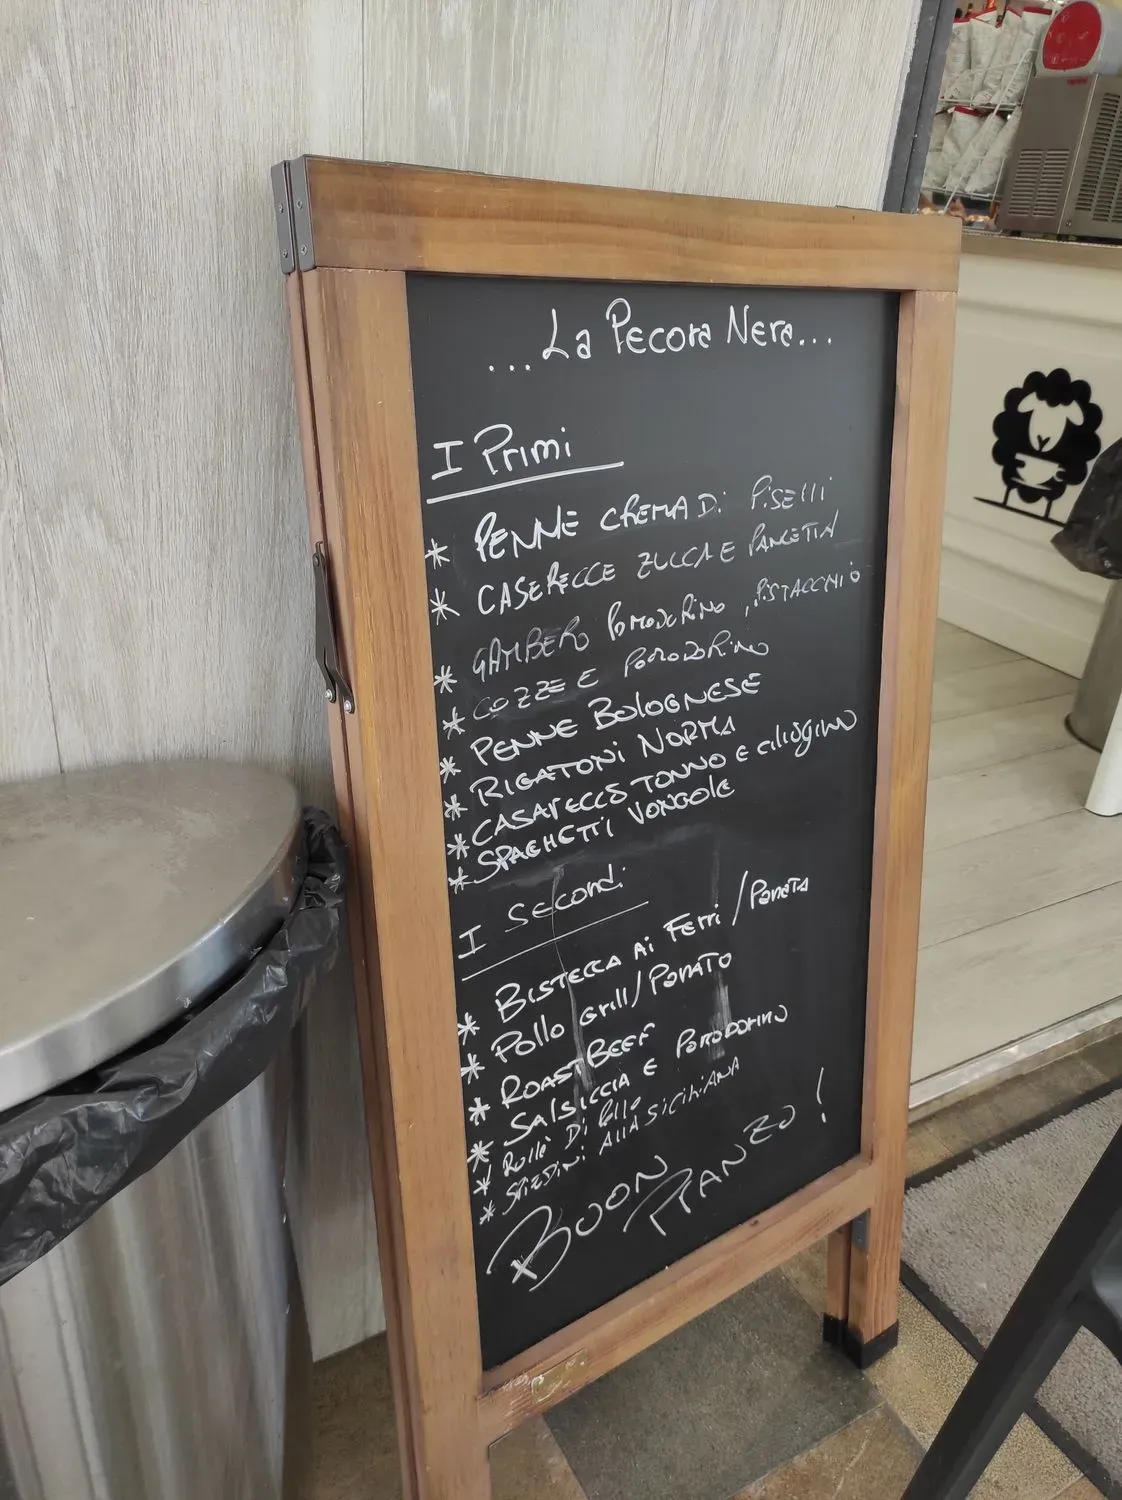 ...La Pecora Nera...
I Primi
* PENNE CREMA Di PiSElli
* CASERECCE ZUCCA E PANCETTA
* GAMBERO POMODORINO, PISTACCHIO
* COZZE E POMODORINO
* PENNE BOLOGNESE
* RIGATONI NORMA
* CASARECCE TONNO E CiliOgiNO
* SPAGHETTI VONGOLE
I Secondi
* BISTECCA Ai FErri / PANATA
* Pollo Grill / PANATO
* ROAST BEEF
* SAlSiCCIA E POMODORINO
* Rollè Di Pollo
* SPIEDINI AllA SICiliANA
* BUON PRANZO!